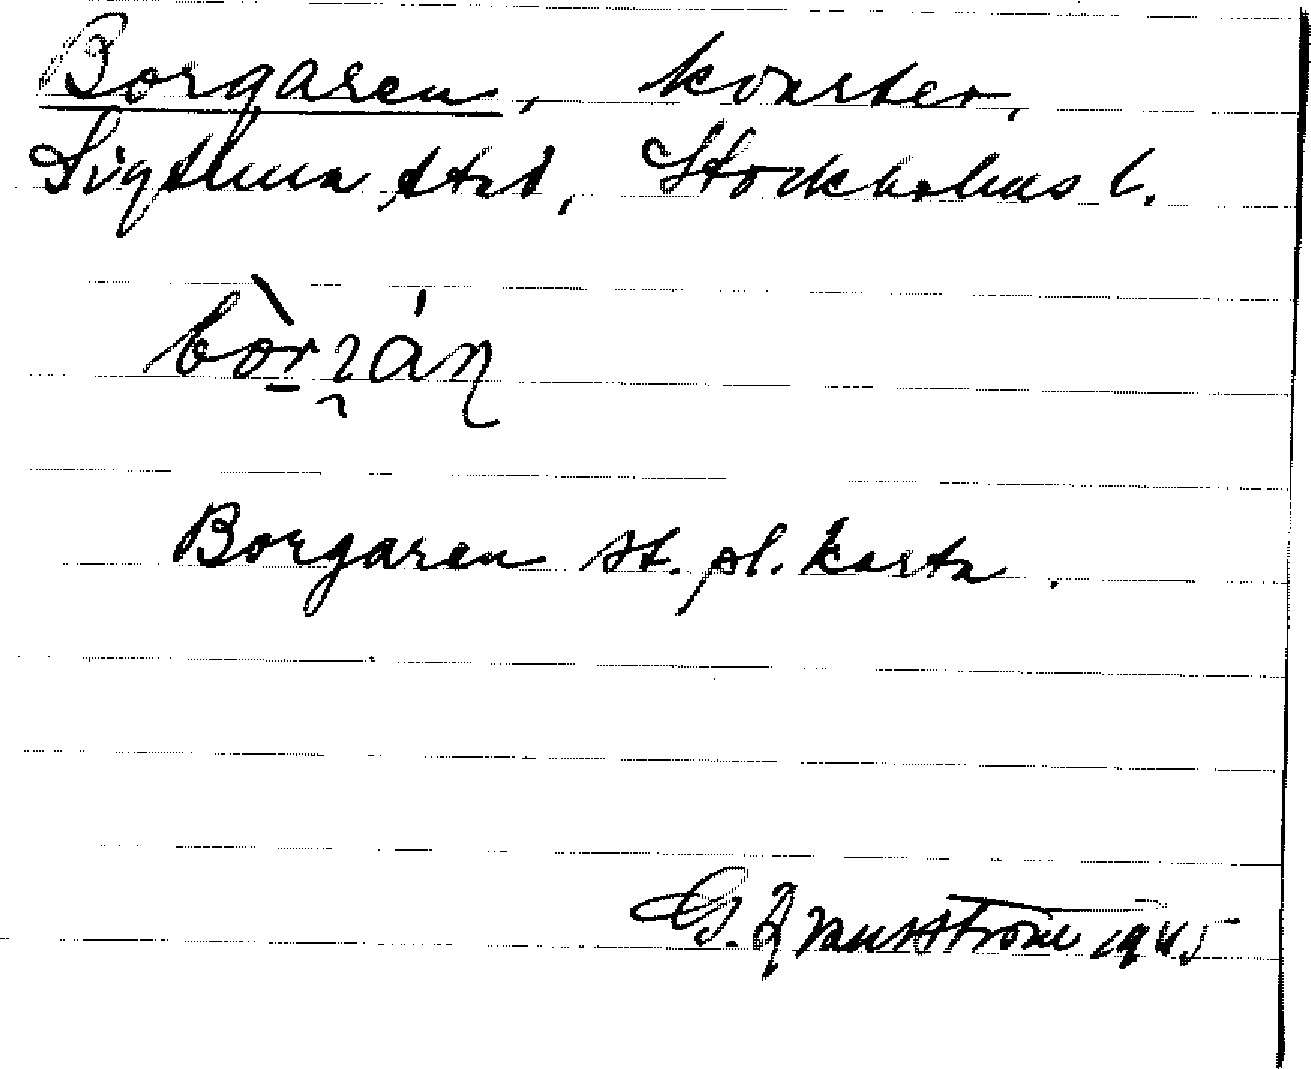 Borgaren, kvarter,
Sigtuna stad, Stockholms l.
Borgaren st. pl. karta.
G. Qvarnström 1945